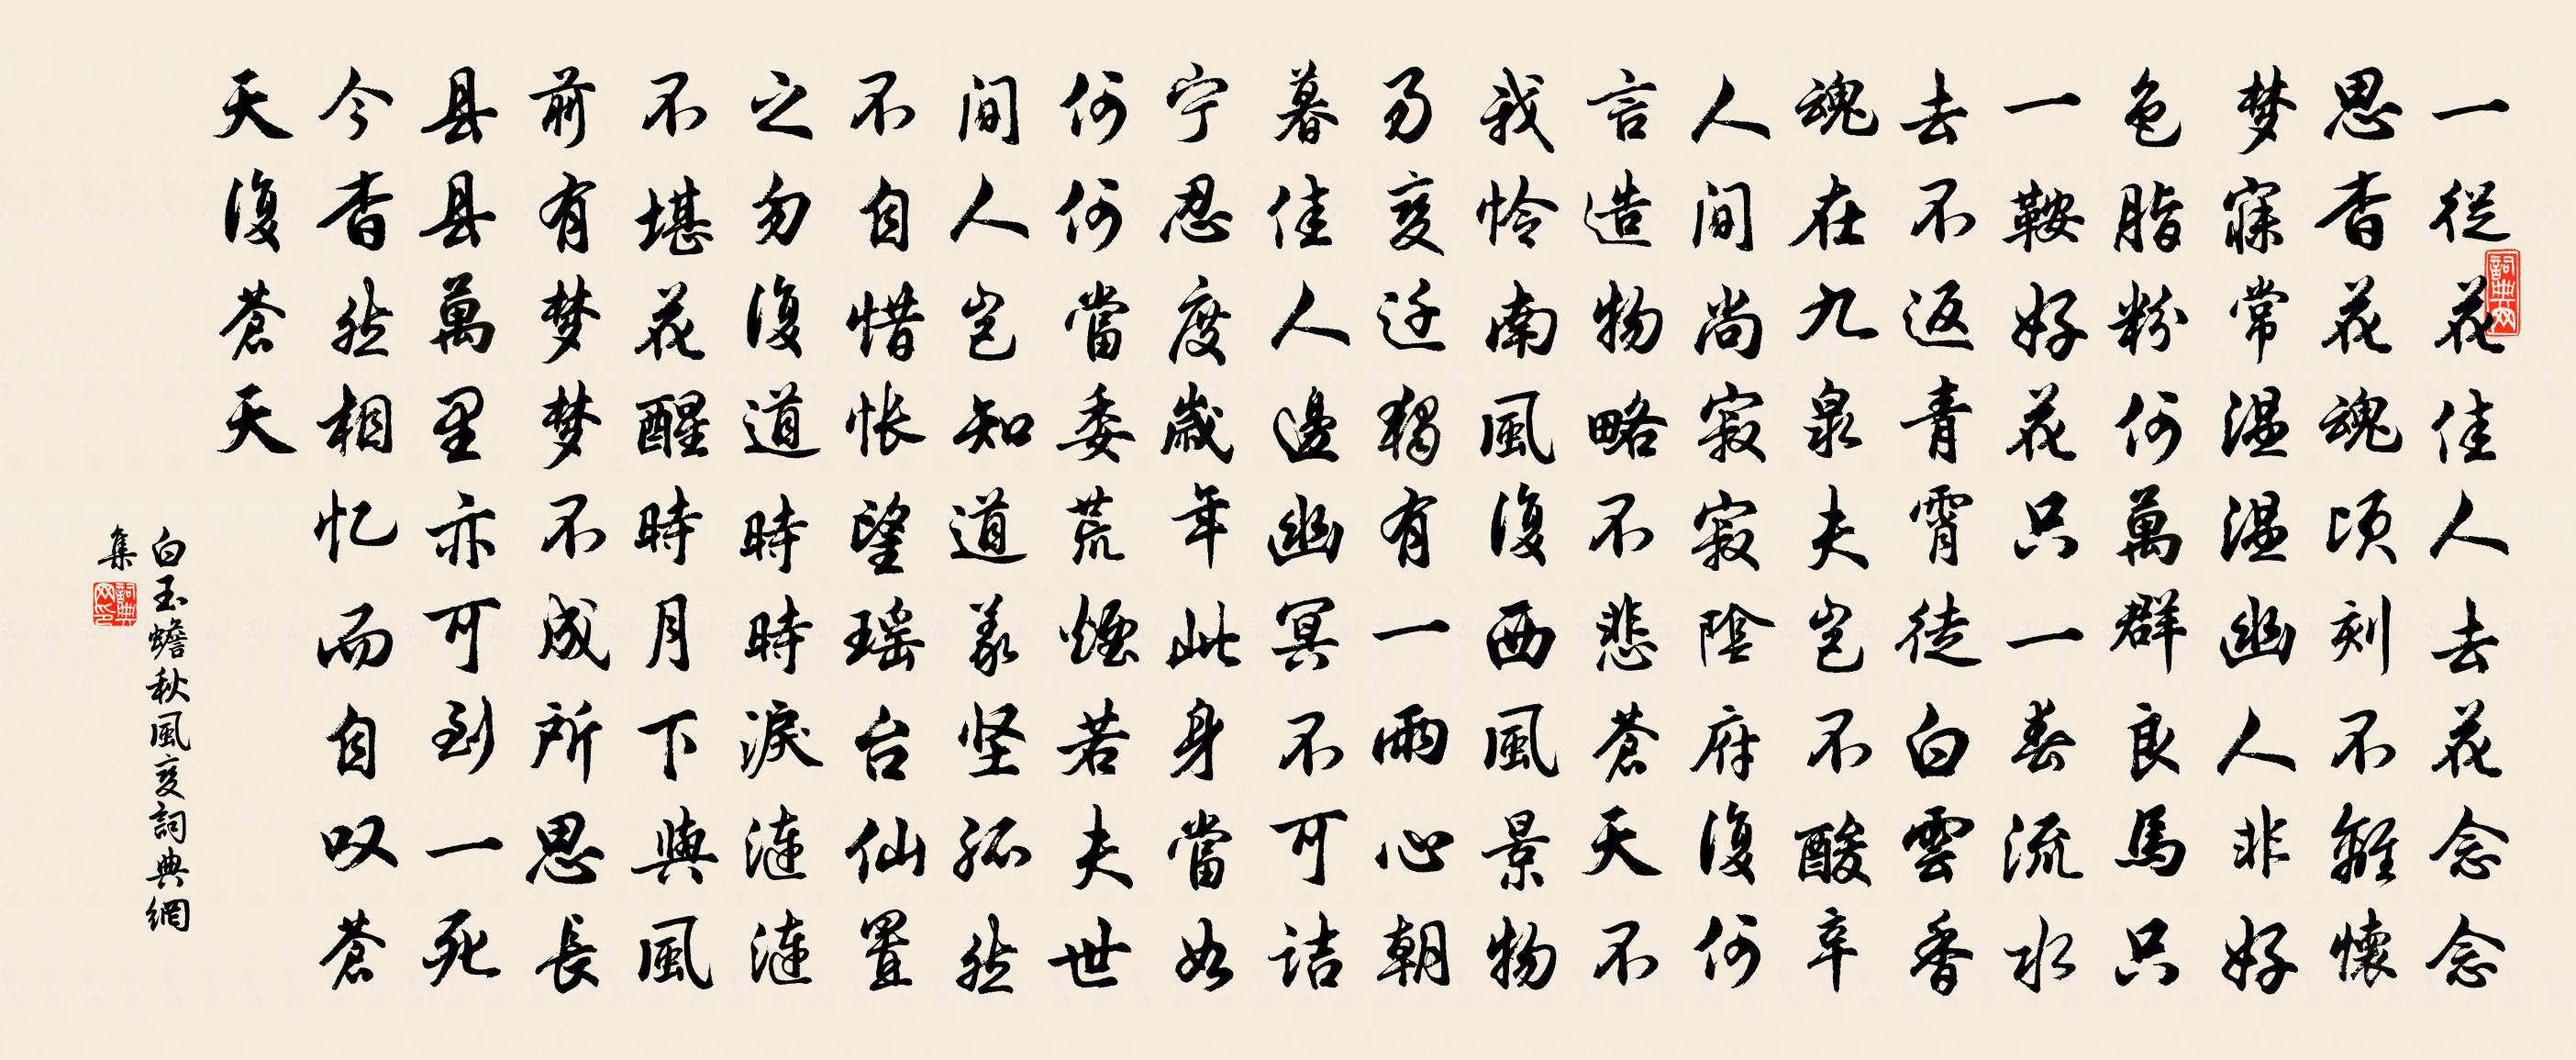 一從花佳人去花念念
思杳花魂頃刻不離懷
梦寐常温温幽人非好
色脂粉何萬群良馬只
一鞍好花只一春流水
去不返青霄徒白雲香
魂在九泉夫豈不酸辛
人間尚寂寂陰府復何
言造物略不悲蒼天不
我怜南風復西風景物
易变迁獨有一兩心朝
暮佳人邊幽冥不可詰
宁忍度歲年此身當如
何何當委荒烟若夫世
間人豈知道義坚孤然
不自惜怅望瑶台仙置
之勿復道時時淚漣漣
不堪花醒時月下與風
前有梦梦不成所思長
县县萬里亦可到一死
今杳然相忆而自叹蒼
天復蒼天
白玉蟾秋風变詞典網
集
詞典网
詞典网